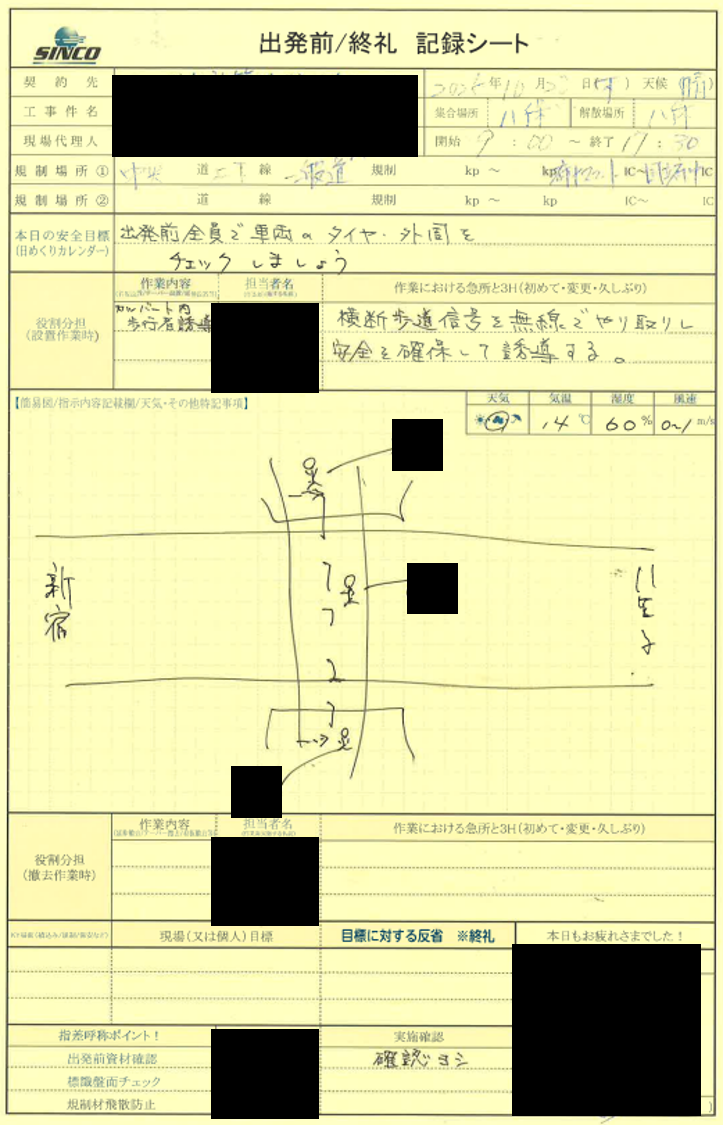 SINCO
出発前/終礼 記録シート
契約先
年10月 日( ) 天候(晴)
工事件名
集合場所 八件 解散場所 八件
現場代理人
開始 9:00 ～ 終了 17:30
規制場所① 中央 道 線 一般道 規制 kp ～ kp IC～ IC
規制場所② 道 線 規制 kp ～ kp IC～ IC
本日の安全目標
(日めくりカレンダー)
出発前全員で車両のタイヤ・外周を
チェックしましょう
作業内容 担当者名 作業における急所と3H(初めて・変更・久しぶり)
役割分担
(設置作業時)
カルバート内
歩行者誘導
横断歩道信号を無線でやり取りし
安全を確保して誘導する。
【簡易図/指示内容記載欄/天気・その他特記事項】
天気 気温 湿度 風速
14℃ 60% 0~1 m/s
新宿
八王子
作業内容 担当者名 作業における急所と3H(初めて・変更・久しぶり)
役割分担
(撤去作業時)
現場(又は個人)目標 目標に対する反省 ※終礼 本日もお疲れさまでした!
指差呼称ポイント! 実施確認
出発前資材確認 確認ヨシ
標識盤面チェック
規制材飛散防止